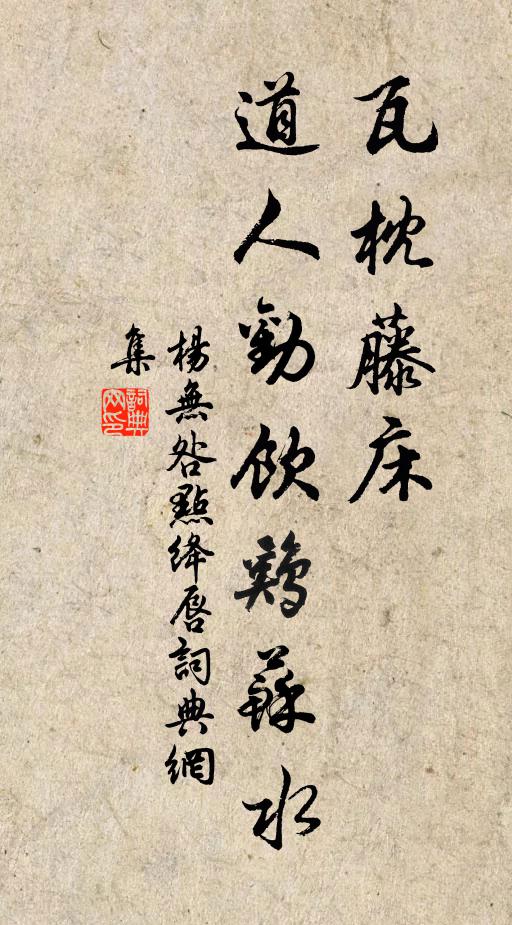 瓦枕藤床
道人勸飲鷄蘇水
楊無咎點绛唇詞典網
集
詞典
网印